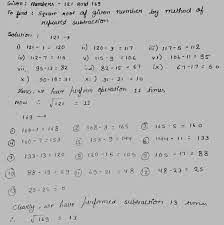 Given: Numbers - 121 and 169
To find: Square root of given numbers by method of repeated subtraction
Solution: 121 →
i) 121-1 = 120 ii) 120-3 = 117 iii) 117-5 = 112
iv) 112-7 = 105 v) 105-9 = 96
vii. 85-13 = 72
x) 40-19 = 21 xi) 21-21 = 0
Now, we have perform operation 11 times
Now √121 = 11
169 →
① 169-1 = 168 ② 168-3 = 165 ③ 165-5 = 160
④ 160-7 = 153 ⑤ 153-9 = 144 ⑥ 144-11 = 133
⑦ 133-13 = 120 ⑧ 120-15 = 105 ⑨ 105-17 = 88
⑩ 88-19 = 69 ⑪ 69-21 = 48 ⑫ 48-23 = 25
⑬ 25-25 = 0
Clearly, we have performed subtraction 13 times
∴ √169 = 13